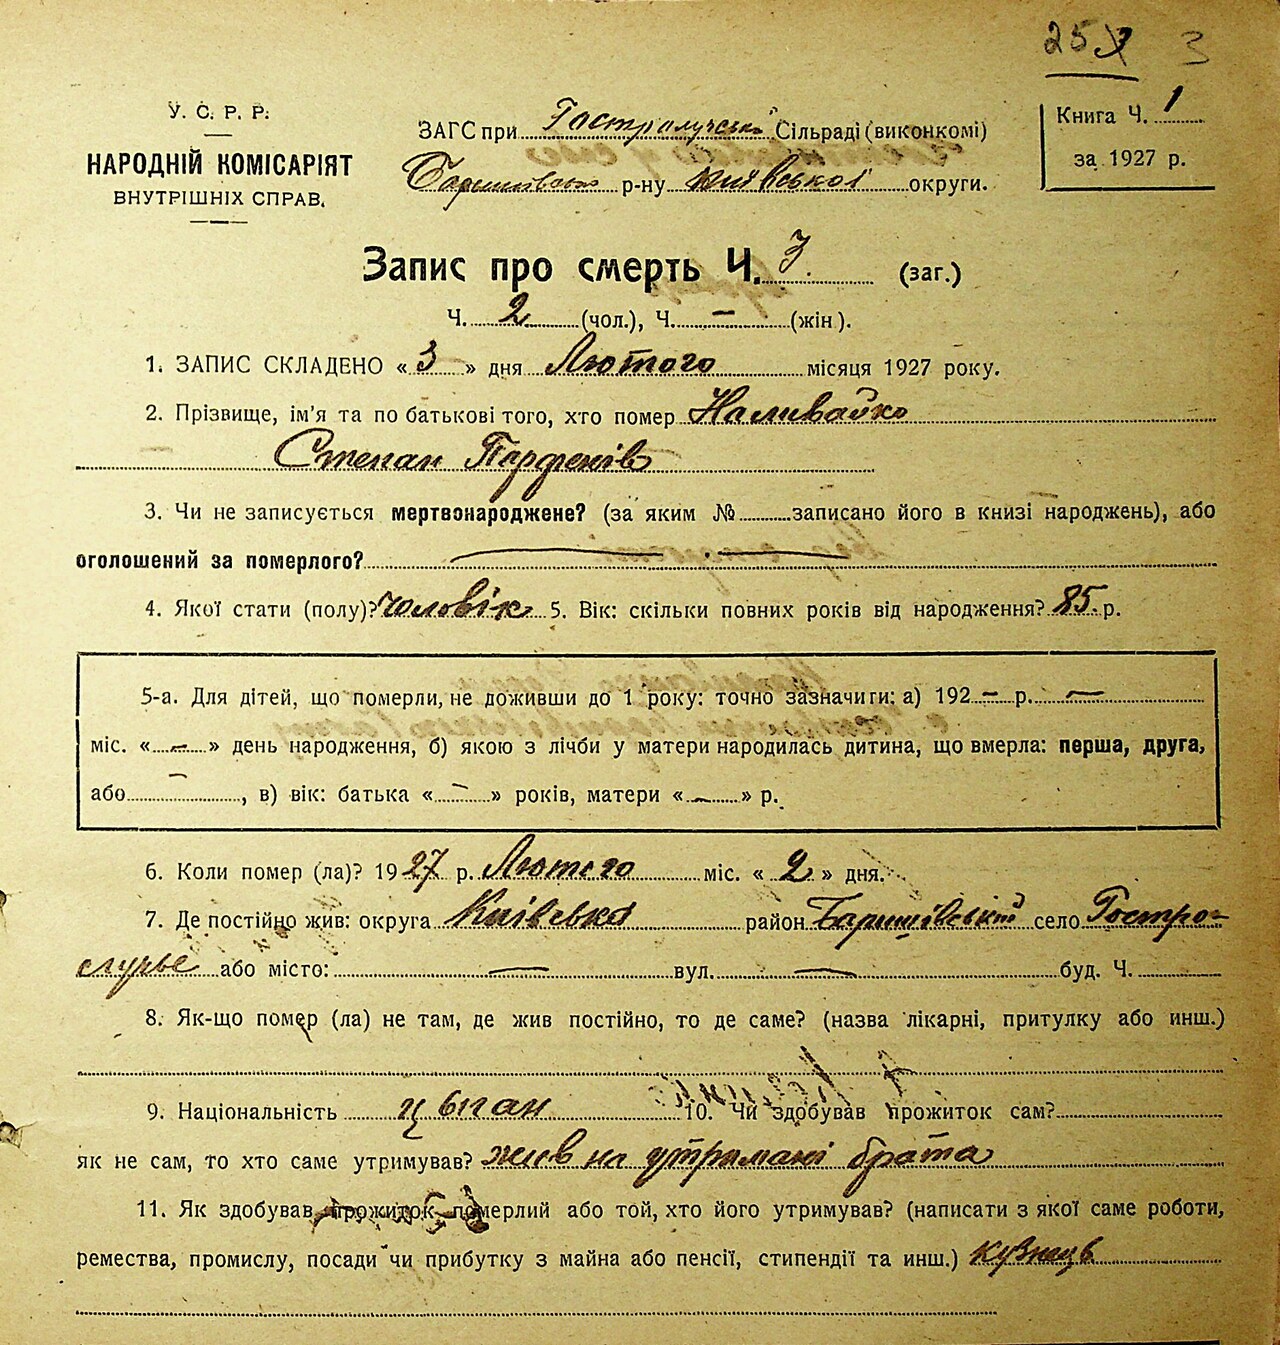 25 3
У. С. Р. Р.
НАРОДНІЙ КОМІСАРІЯТ
ВНУТРІШНІХ СПРАВ.
ЗАГС при Гостролуцькій Сільраді (виконкомі)
Баришівськ р-ну Київської округи.
Книга Ч. 1
за 1927 р.
Запис про смерть Ч. 3. (заг.)
Ч. 2 (чол.), Ч. — (жін).
1. ЗАПИС СКЛАДЕНО « 3 » дня Лютого місяця 1927 року.
2. Прізвище, ім'я та по батькові того, хто помер Наливайко
Степан Парфенів
3. Чи не записується мертвонароджене? (за яким № записано його в книзі народжень), або
оголошений за померлого? —
4. Якої стати (полу)? чоловік 5. Вік: скільки повних років від народження? 85. р.
5-а. Для дітей, що померли, не доживши до 1 року: точно зазначити: а) 192 — р. —
міс. « — » день народження, б) якою з лічби у матери народилась дитина, що вмерла: перша, друга,
або — , в) вік: батька « — » років, матери « — » р.
6. Коли помер (ла)? 1927 р. Лютого міс. « 2 » дня.
7. Де постійно жив: округа Київська район Баришівський село Гостро-
лучьє або місто: — вул. — буд. Ч.
8. Як-що помер (ла) не там, де жив постійно, то де саме? (назва лікарні, притулку або инш.)
9. Національність цыган 10. Чи здобував прожиток сам?
як не сам, то хто саме утримував? жив на утримані брата
11. Як здобував прожиток померлий або той, хто його утримував? (написати з якої саме роботи,
ремества, промислу, посади чи прибутку з майна або пенсії, стипендії та инш.) кузнець